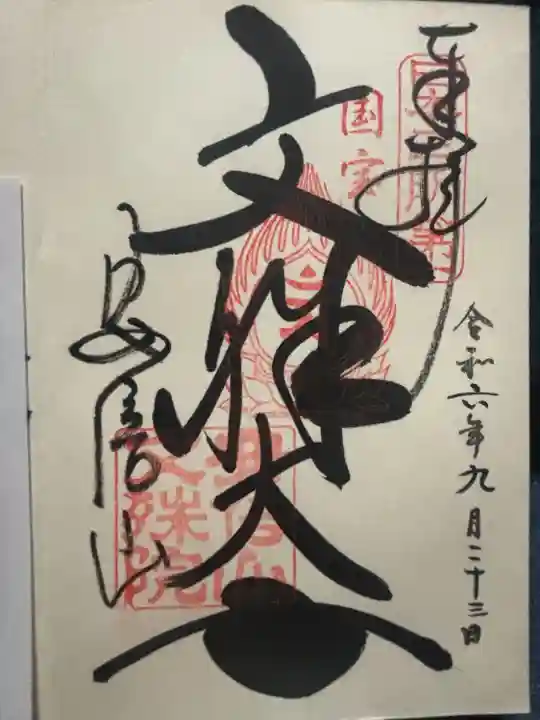 奉拝
令和六年九月二十三日
国宝
文殊大
安倍山
安倍山
文殊院